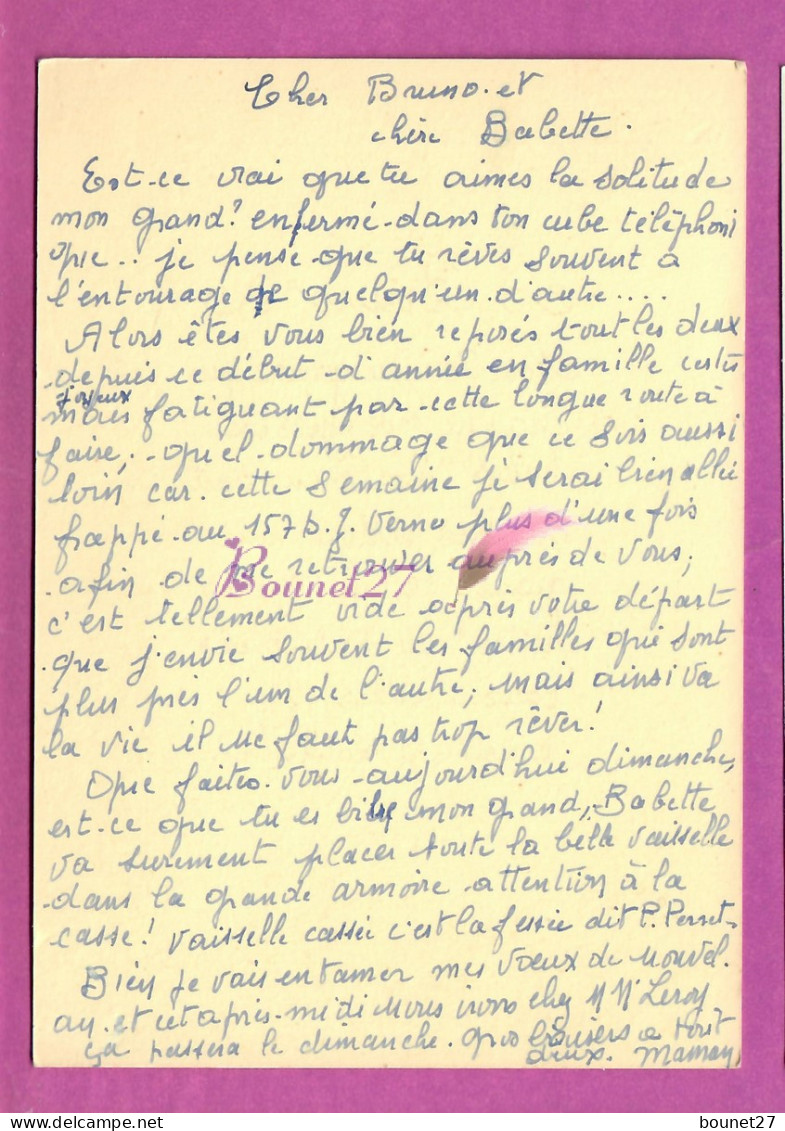 Cher Bruno et
chère Babette.
Est-ce vrai que tu aimes la solitude
mon grand? enfermé dans ton cube téléphoni
que.. je pense que tu rêves souvent a
l'entourage de quelqu'un d'autre....
Alors êtes vous bien reposés tout les deux
depuis ce début d'année en famille certes
joyeux
mais fatiguant par cette longue route à
faire, quel dommage que ce sois aussi
loin car cette semaine je serai bien allée
frappé au 157 b. J. Verne plus d'une fois
afin de me retrouver auprès de vous;
Bounet27
c'est tellement vide après votre départ
que j'envie souvent les familles qui sont
plus près l'un de l'autre, mais ainsi va
la vie il ne faut pas trop rêver!
Que faites-vous aujourd'hui dimanche,
est-ce que tu es mon grand, Babette
va surement placer toute la belle vaisselle
dans la grande armoire attention à la
casse! vaisselle cassée c'est la fessée dit P. Perret.
Bien je vais entamer mes vœux de nouvel.
an et cet après-midi nous irons chez M Mme Leroy
ça passera le dimanche. gros baisers a tout
deux. Maman
bounet27